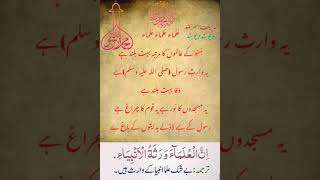 علماء علماء علماء علماء
سنو کے عالموں کا مرتبہ بہت بلند ہے
یہ وارثِ رسول (صلی اللہ علیہ وسلم) ہے
وفا بہت بلند ہے
یہ مسجدوں کا نور ہے یہ قوم کا چراغ ہے
رسول کے بے لاڈلے ہدایتوں کے بلاغ ہے
اِنَّ الْعُلَمَآءَ وَرَثَةُ الْاَنْبِيَآءِ.
ترجمہ: بے شک علما انبیا کے وارث ہیں۔